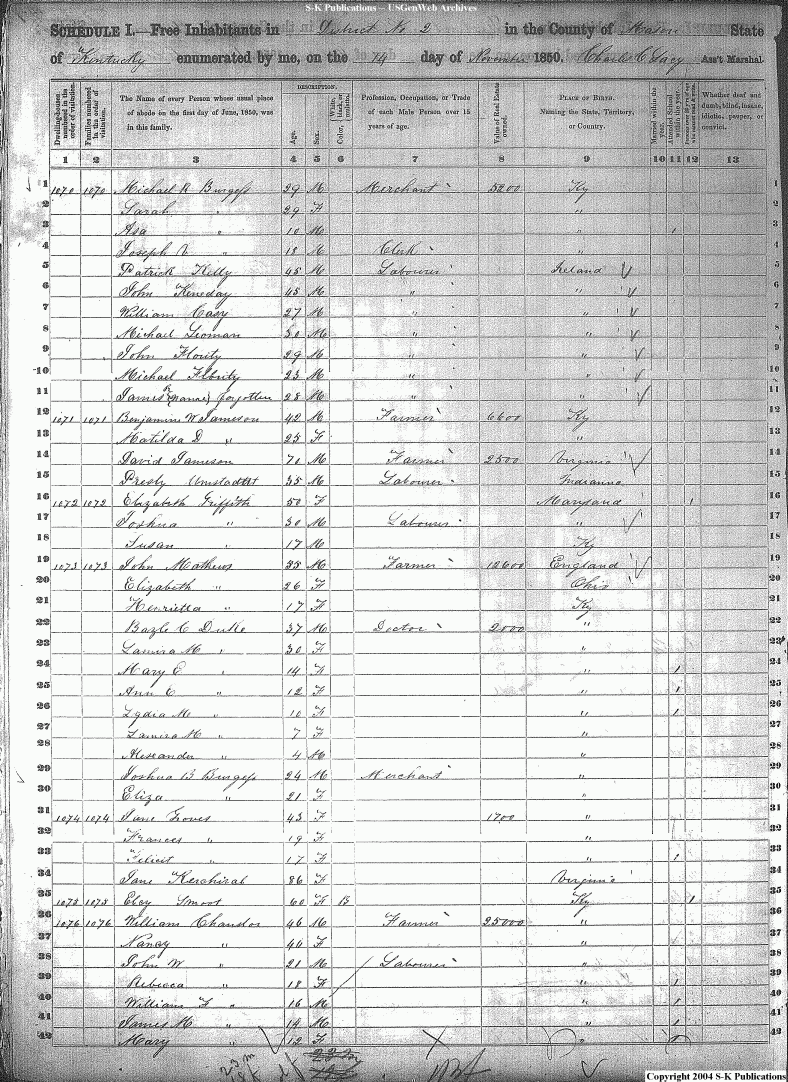 S-K Publications – USGenWeb Archives
SCHEDULE I.—Free Inhabitants in District No 2 in the County of Mason State
of Kentucky enumerated by me, on the 14 day of November 1850. Charles C Lacy Ass't Marshal.
Dwelling-houses numbered in the order of visitation. Families numbered in the order of visitation. The Name of every Person whose usual place of abode on the first day of June, 1850, was in this family. DESCRIPTION. Age. Sex. Color, White, black, or mulatto. Profession, Occupation, or Trade of each Male Person over 15 years of age. Value of Real Estate owned. PLACE OF BIRTH. Naming the State, Territory, or Country. Married within the year. Attended School within the year. Whether deaf and dumb, blind, insane, idiotic, pauper, or convict.
1 2 3 4 5 6 7 8 9 10 11 12 13
1 1070 1070 Michael R Burgess 29 M Merchant 5200 Ky 1
2 Sarah " 29 F " 2
3 Asa " 10 M " 1 3
4 Joseph V " 18 M Clerk 4
5 Patrick Kelly 45 M Labourer Ireland 5
6 John Keneday 45 M " " 6
7 William Casy 27 M " " 7
8 Michael 30 M " " 8
9 John Flority 29 M " " 9
10 Michael Flority 23 M " " 10
11 James (name) forgotten 28 M " " 11
12 1071 1071 Benjamin W Jameson 42 M Farmer 6600 Ky 12
13 Matilda D " 25 F " 13
14 David Jameson 70 M Farmer 2500 Virginia 14
15 Presly Umstadtt 35 M Labourer Indianna 15
16 1072 1072 Elizabeth Griffith 50 F Maryland 1 16
17 Joshua " 30 M Labourer " 17
18 Susan " 17 M Ky 18
19 1073 1073 John Mathews 35 M Farmer 12600 England 19
20 Elizabeth " 26 F Ohio 20
21 Henrietta " 17 F Ky 21
22 Bazle C Duke 37 M Doctor 2000 " 22
23 Lamira M " 30 F " 23
24 Mary E " 14 F " 1 24
25 Ann E " 12 F " 1 25
26 Lydia M " 10 F " 1 26
27 Lamira M " 7 F " 27
28 Alexander " 4 M " 28
29 Joshua B Burgess 24 M Merchant " 29
30 Eliza " 21 F " 30
31 1074 1074 Jane Groves 43 F 1700 " 31
32 Frances " 19 F " 32
33 Felicit " 17 F " 1 33
34 Jane 86 F Virginia 34
35 1075 1075 Smoot 60 F B Ky 1 35
36 1076 1076 William Chandor 46 M Farmer 25000 " 36
37 Nancy " 40 F " 37
38 John W " 21 M Labourer " 38
39 Rebecca " 18 F " 1 39
40 William F " 16 M " 1 40
41 James M " 14 M " 1 41
42 Mary " 12 F " 1 42
Copyright 2004 S-K Publications